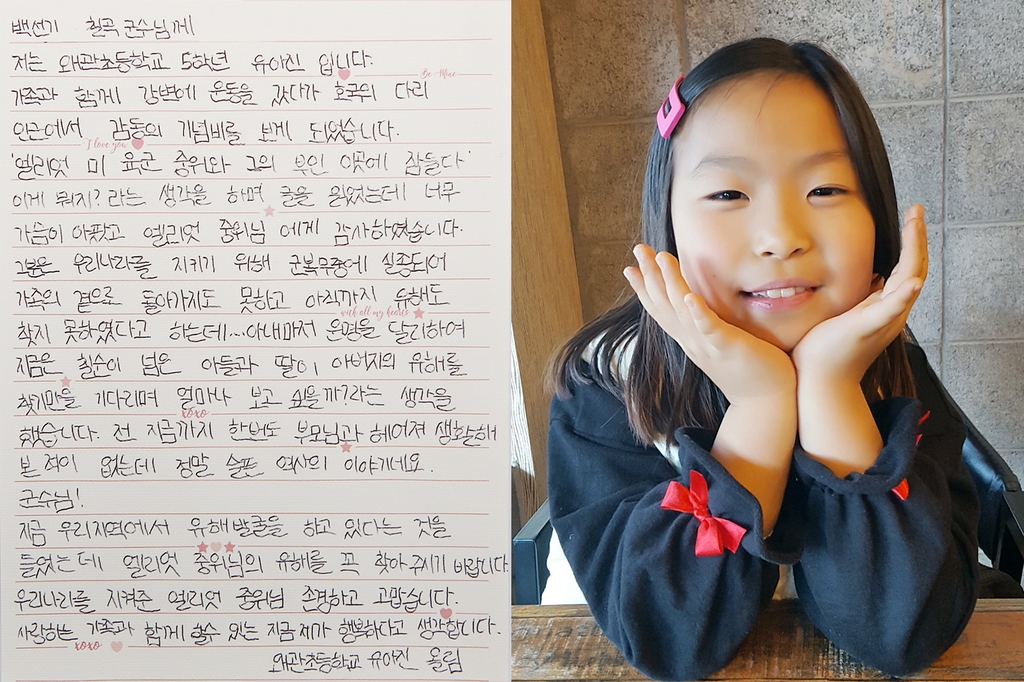 백선기 칠곡 군수님께
저는 왜관초등학교 5학년 유아진 입니다.
Be Mine
가족과 함께 강변에 운동을 갔다가 호국의 다리
인근에서 감동의 기념비를 보게 되었습니다.
I love you
'엘리엇 미 육군 중위와 그의 부인 이곳에 잠들다'
이게 뭐지? 라는 생각을 하며 글을 읽었는데 너무
가슴이 아팠고 엘리엇 중위님 에게 감사하였습니다.
그분은 우리나라를 지키기 위해 군복무중에 실종되어
가족의 곁으로 돌아가지도 못하고 아직까지 유해도
with all my hearts
찾지 못하였다고 하는데...아내마저 운명을 달리하여
지금은 칠순이 넘은 아들과 딸이 아버지의 유해를
찾기만을 기다리며 얼마나 보고 싶을까?라는 생각을
xoxo
했습니다. 전 지금까지 한번도 부모님과 헤어져 생활해
본 적이 없는데 정말 슬픈 역사의 이야기네요.
군수님!
지금 우리지역에서 유해발굴을 하고 있다는 것을
들었는데 엘리엇 중위님의 유해를 꼭 찾아주시기 바랍니다
우리나라를 지켜준 엘리엇 중위님 존경하고 고맙습니다.
사랑하는 가족과 함께 할수 있는 지금 제가 행복하다고 생각합니다.
xoxo
왜관초등학교 유아진 올림